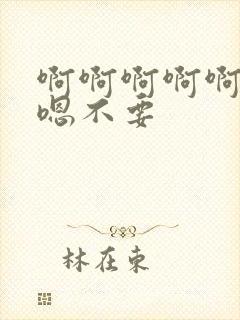 啊啊啊啊啊
嗯不要
林在东